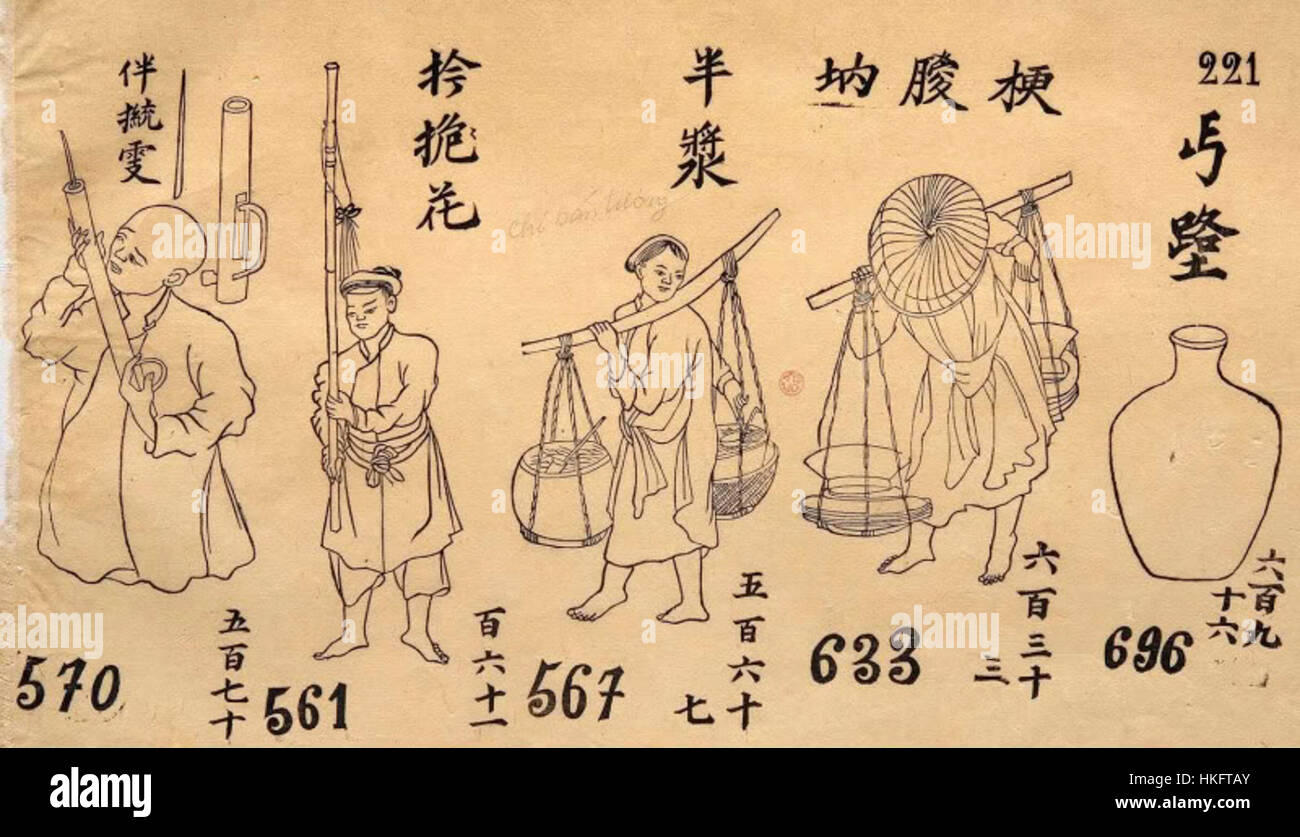 221
丐
梗朡
半漿
花
伴 雯
Chị bán tương
五百七十
百六十一
五百六十
七
六百三十
三
六百九
十六
570
561
567
633
696
alamy
Image ID: HKFTAY
www.alamy.com